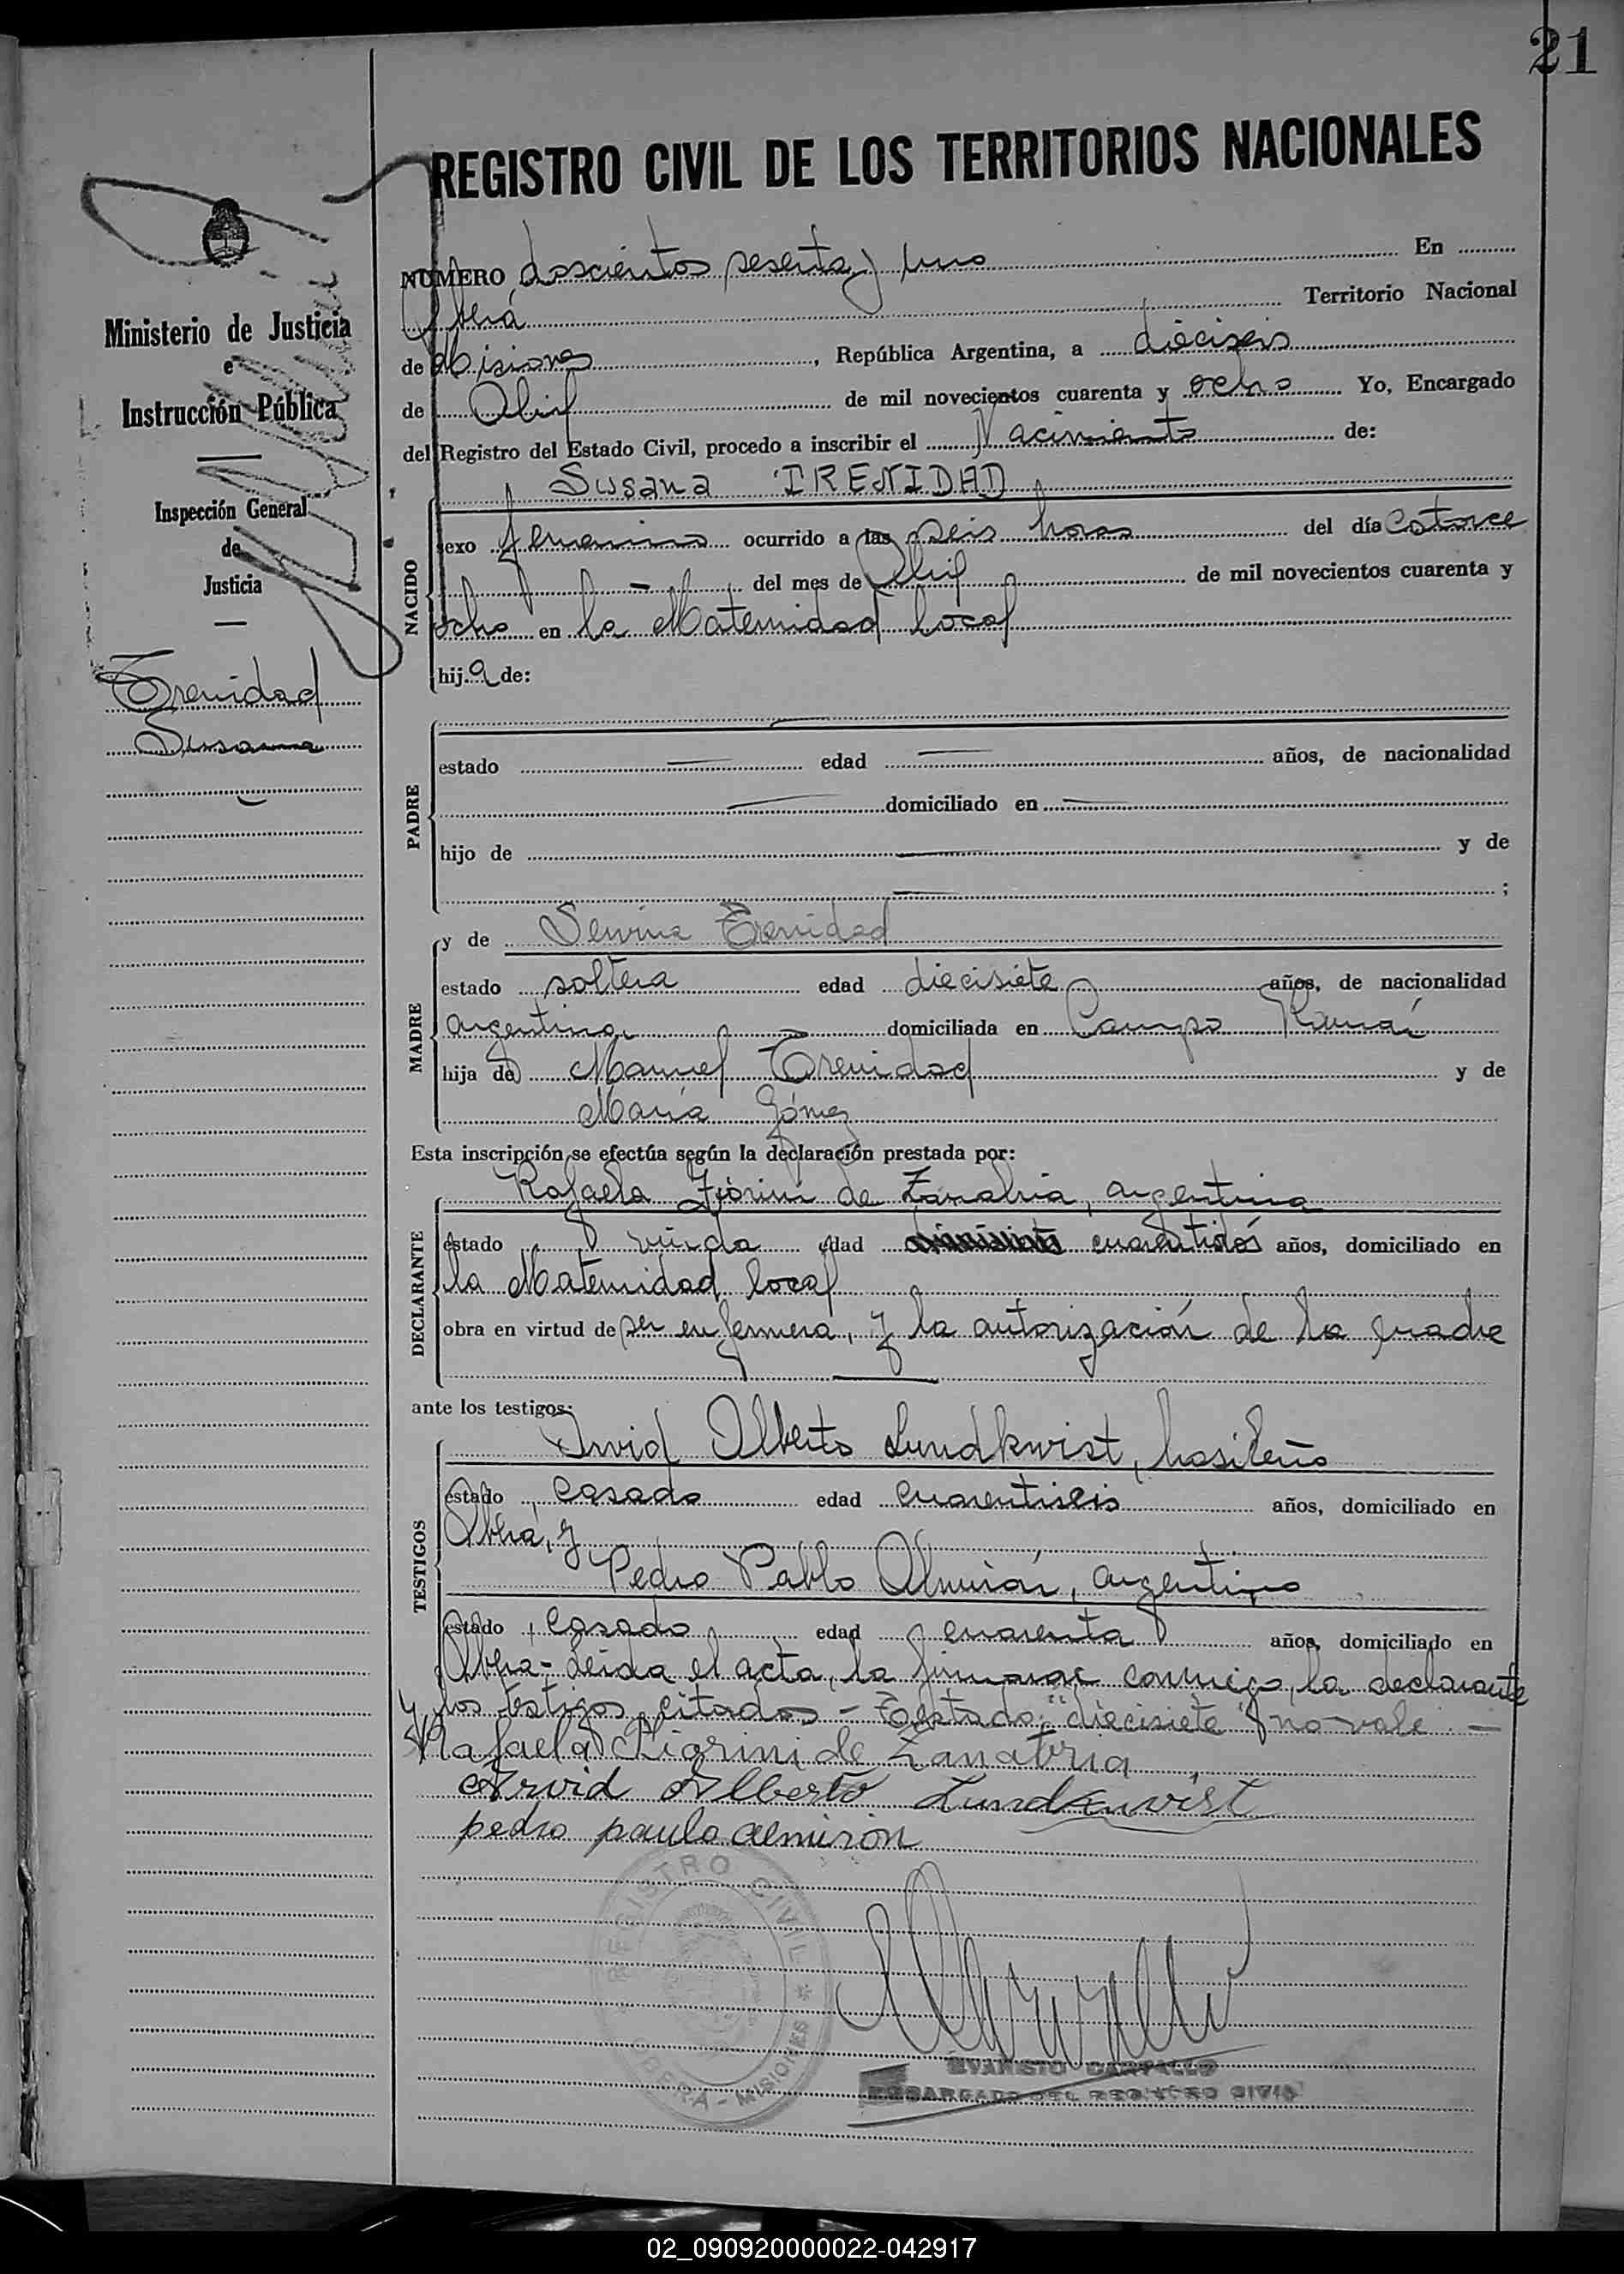 21
REGISTRO CIVIL DE LOS TERRITORIOS NACIONALES
Ministerio de Justicia
e
Instrucción Pública
Inspección General
de
Justicia
Trenidad
Susana
NUMERO doscientos sesenta y uno En
Oberá Territorio Nacional
de Misiones, República Argentina, a dieciseis
de Abril de mil novecientos cuarenta y ocho Yo, Encargado
del Registro del Estado Civil, procedo a inscribir el Nacimiento de:
NACIDO
Susana TRENIDAD
sexo femenino ocurrido a las seis horas del día catorce
- del mes de Abril de mil novecientos cuarenta y
ocho en la Maternidad local
hija de:
PADRE
estado — edad — años, de nacionalidad
— domiciliado en —
hijo de — y de
— ;
MADRE
y de Trenidad
estado soltera edad diecisiete años, de nacionalidad
argentina domiciliada en Campo
hija de Manuel Trenidad y de
María Gómez
Esta inscripción se efectúa según la declaración prestada por:
DECLARANTE
Rafaela Fiorini de Zanabria, argentina
estado viuda edad cuarentidós años, domiciliado en
la Maternidad local
obra en virtud de ser enfermera, y la autorización de la madre
ante los testigos:
TESTIGOS
Arvid Alberto Lundkwist, brasileño
estado casado edad cuarentiseis años, domiciliado en
Oberá, y
Pedro Pablo Almirón, argentino
estado casado edad cuarenta años, domiciliado en
Oberá - Leída el acta, la firmaron conmigo, la declarante
y los testigos citados - Testado: "diecisiete" no vale. -
Rafaela Fiorini de Zanabria
Arvid Alberto Lundkwist
pedro paulo almiron
REGISTRO CIVIL
OBERA - MISIONES
EVARISTO CARVALLO
ENCARGADO DEL REGISTRO CIVIL
02_090920000022-042917